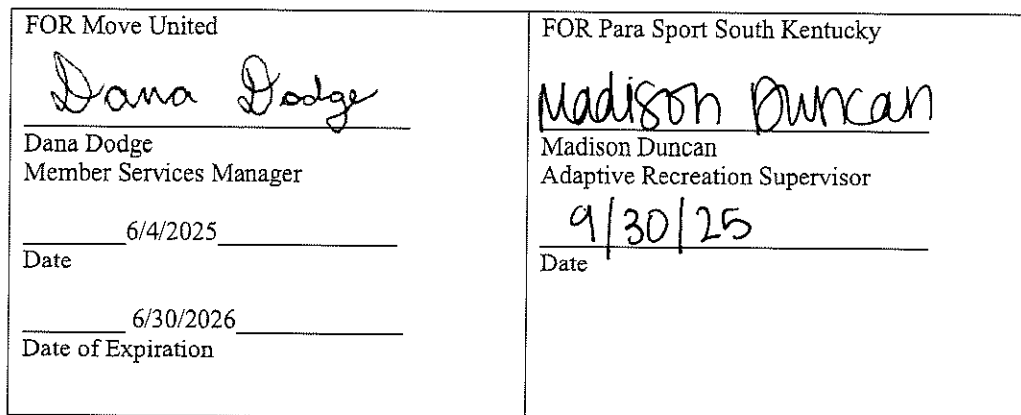 FOR Move United
Dana Dodge
Dana Dodge
Member Services Manager
6/4/2025
Date
6/30/2026
Date of Expiration
FOR Para Sport South Kentucky
Madison Duncan
Madison Duncan
Adaptive Recreation Supervisor
9/30/25
Date